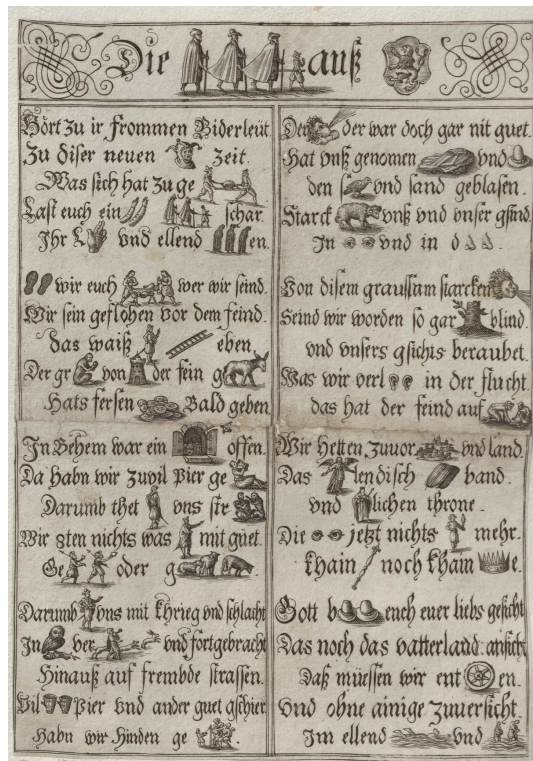 Die auß
Hört zu ir frommen Biderleüt.
Zu diser neuen zeit.
Was sich hat zu ge
Last euch ein schar.
Ihr L und ellend en.
wir euch wer wir seind.
Wir sein geflohen vor dem feind.
das waiß eben.
Der gr von der fein g
Hats fersen Bald geben
In Behem war ein offen.
Da habn wir zuvil Pier ge
Darumb thet uns stre
Wir zten nichts was mit güet.
Ge oder g
Darumb uns mit khrieg und schlacht
In ver und fortgebracht
Hinauß auf frembde strassen.
Vil Pier und ander guet gschier
Habn wir hinden ge
Der der war doch gar nit guet.
Hat unß genomen und
den und sand geblasen.
Starck unß und unser gsind.
In und in d
Von disem graussam starcken
Seind wir worden so gar blind.
und unsers gsichts beraubet.
Was wir verl in der flucht.
das hat der feind auf
Wir hetten zuuor und land.
Das lendisch band.
und lichen throne.
Die jetzt nichts mehr.
khain noch kham e.
Gott b euch euer liebs gesicht
Das noch das vatterland: ansicht
Daß müessen wir ent en.
Und ohne ainige zuuersicht.
Im ellend und